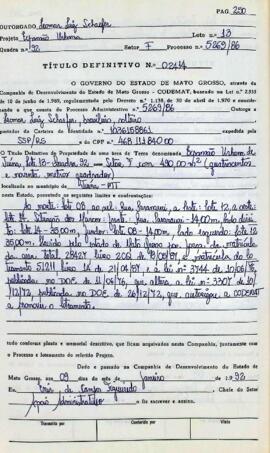 PAG 250
OUTORGADO Leomar Luiz Schaefer
Projeto Expansão Urbana Lote n.º 13
Quadra n.º 92 Setor F Processo n.º 5269/86
TÍTULO DEFINITIVO N.º 02414
O GOVERNO DO ESTADO DE MATO GROSSO, através da
Companhia de Desenvolvimento do Estado de Mato Grosso - CODEMAT, baseado na Lei n.º
de 10 de junho de regulamentado pelo Decreto n.º 1.138, de 30 de abril de 1970 e consideran-
do o que consta do Processo Administrativo n.º 5269/86 Outorga a
Leomar Luiz Schaefer, brasileiro, solteiro
portador da Carteira de Identidade n.º expedida pela
SSP/RS e do CPF n.º 468.111.840.00
O Título Definitivo de Propriedade de uma área de Terra denominada Expansão Urbana de
Vera, lote 13 - Quadra 92 - Setor F com 490,00 m² (quatrocentos
e noventa metros quadrados)
localizada no município de
Vera - MT
neste Estado, possuindo os seguintes limites e confrontações:
ao norte: lote 08 ao sul: Rua a leste: lote 12, a oeste:
lote 14. frente: Rua 14,00m, lado direi-
to: lote 14 - 35,00m, fundos: lote 08 - 14,00m, lado esquerdo: lote 12
35,00m. pelo estado de Mato Grosso por da matrícula
da área total 28427 livro 206 matrícula do lo
51211 livro 14 de 21/04/87 e a lei nº 3744 de 10/06/76,
publicada no DOE de 11/06/76, que altera a lei nº 3307 de
/12/72 publicada no DOE de 26/12/72, que autoriza a CODEMAT
a promover o loteamento.
tudo conforme planta e memorial descritivo, que ficam arquivados nesta Companhia, juntamente com
o Processo e loteamento do referido Projeto.
Dado e passado na Companhia de Desenvolvimento do Estado de
Mato Grosso, aos 09 dias do mês de Janeiro de 1992
Eu, de Campos Figueiredo, Chefe do Setor
Apoio Administrativo o fiz escrever e assino.
Transcrito por Conferido por Visto